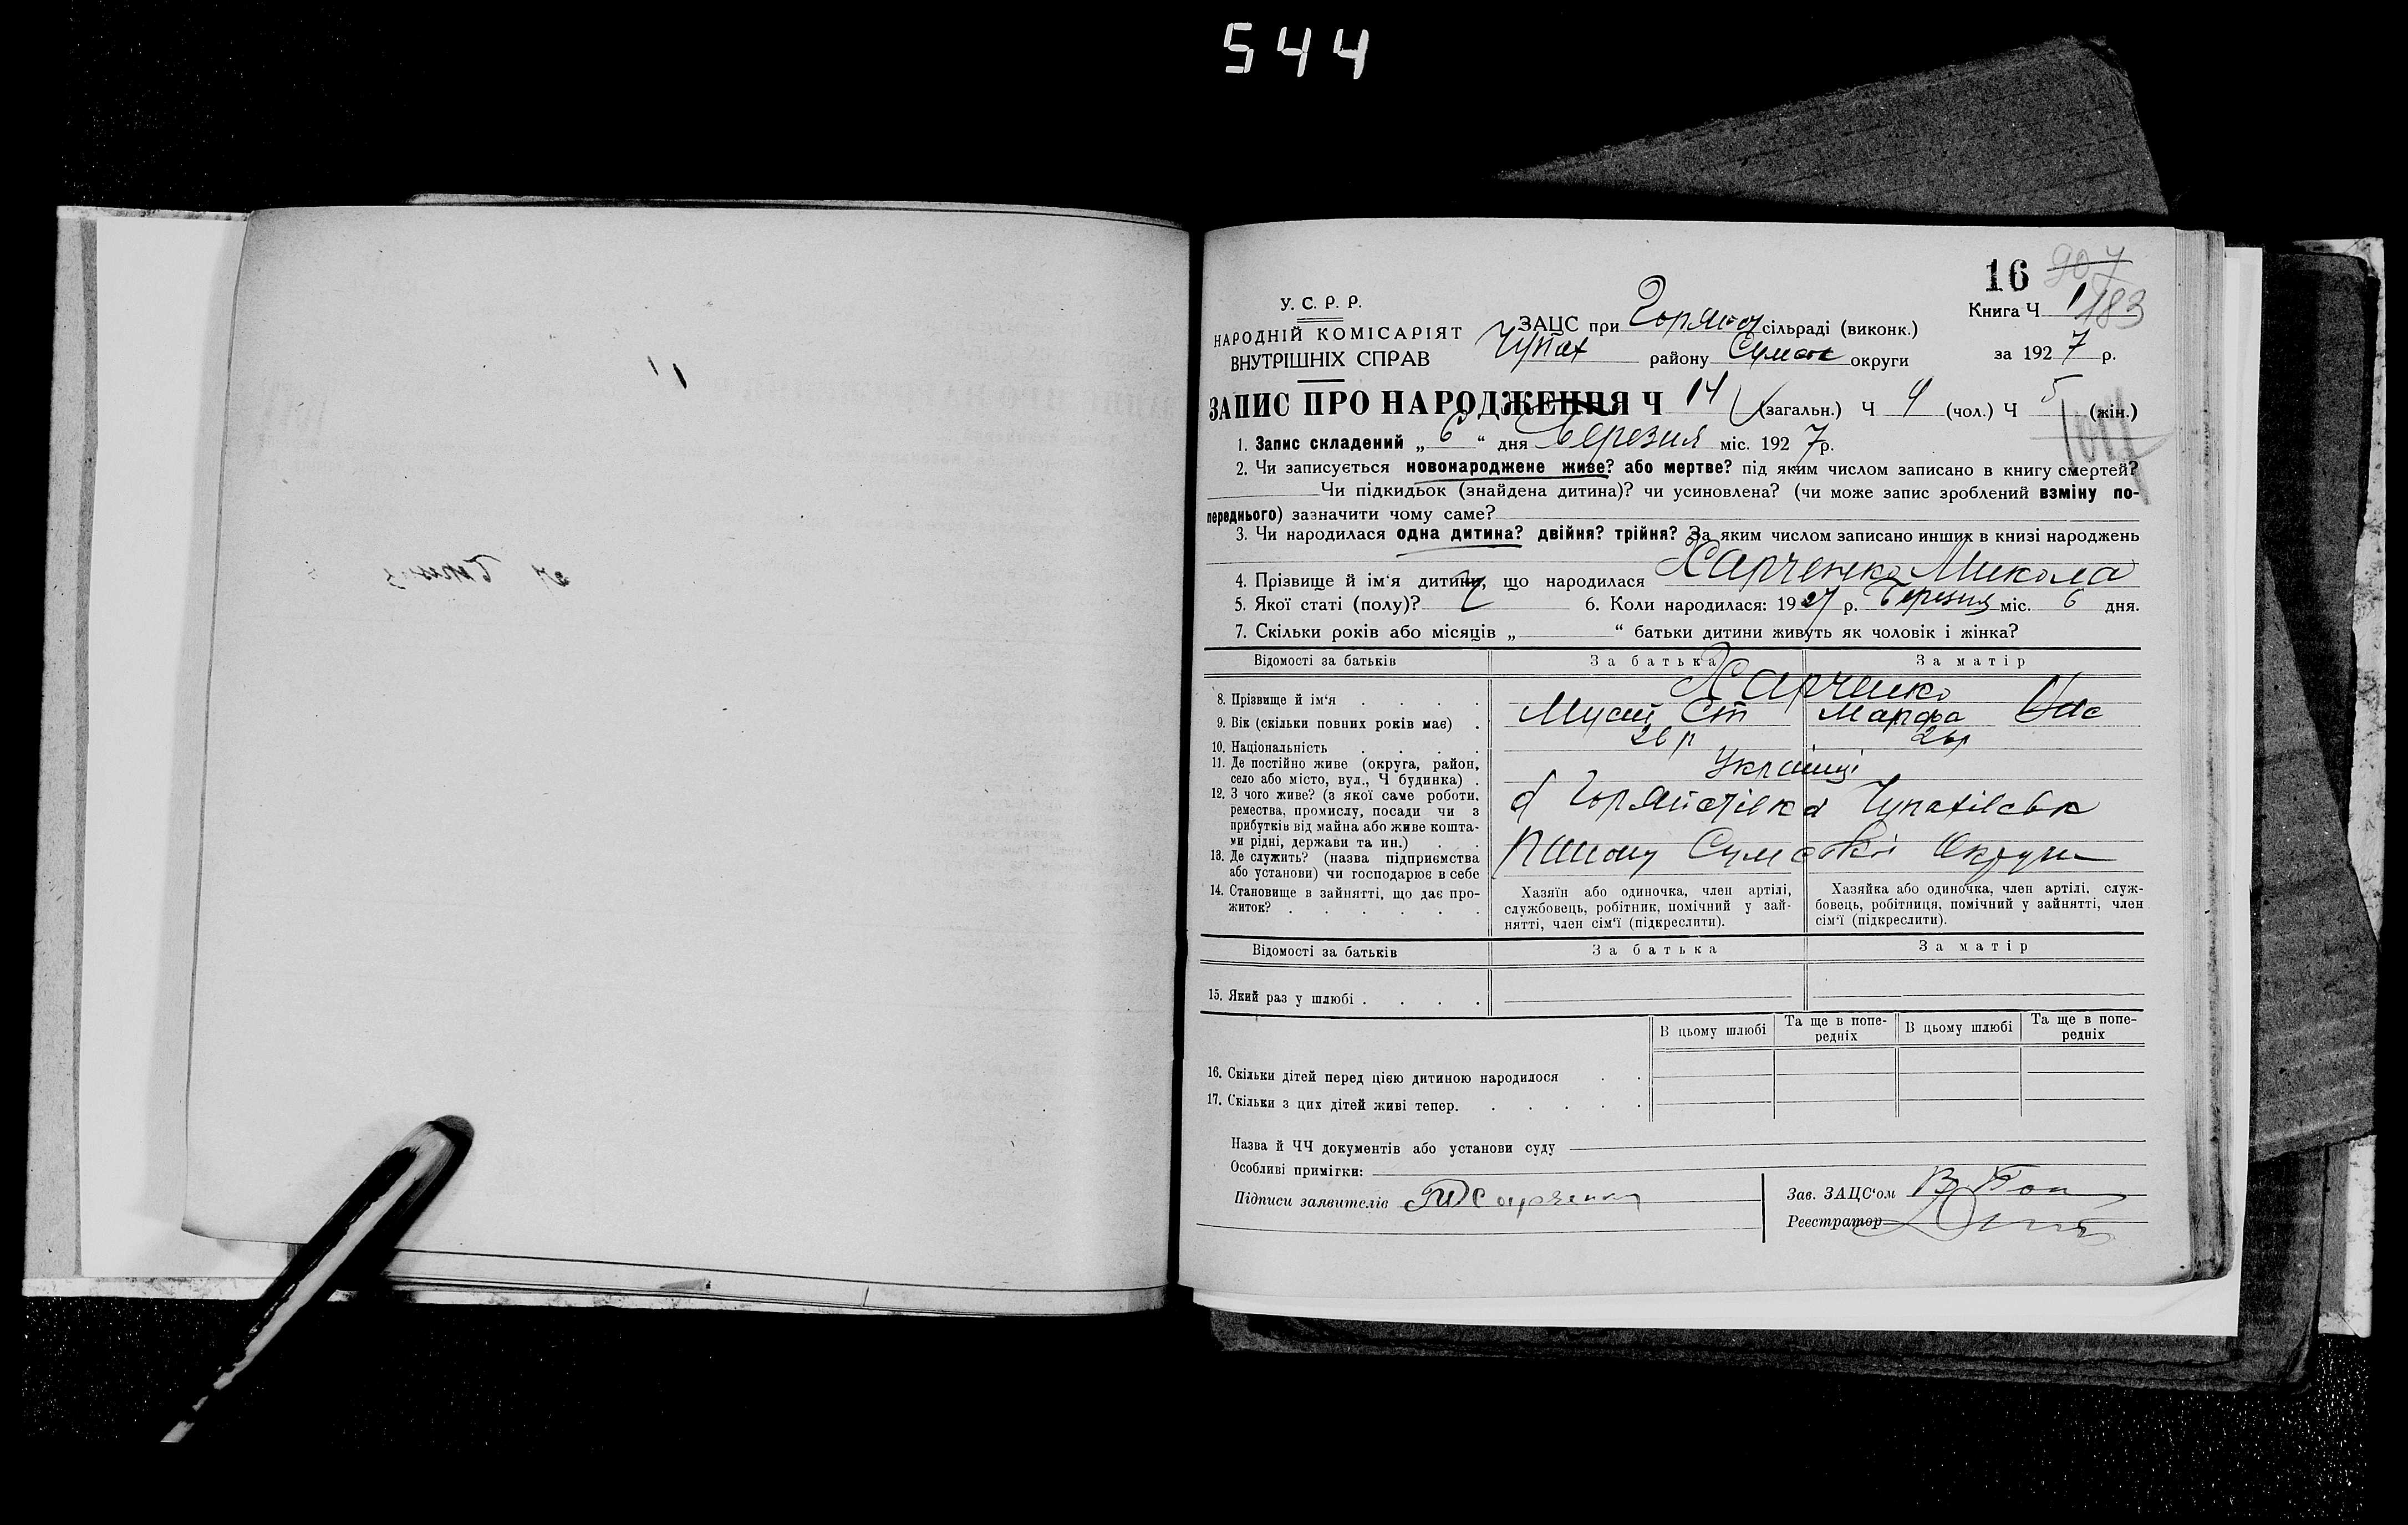 544
16 907
183
У. С. Р. Р.
НАРОДНІЙ КОМІСАРІЯТ
ВНУТРІШНІХ СПРАВ
ЗАЦС при сільраді (виконк.)
Чупах району Сумськ округи
Книга Ч 1
за 1927 р.
ЗАПИС ПРО НАРОДЖЕННЯ Ч 14 (загальн.) Ч 9 (чол.) Ч 5 (жін.)
1. Запис складений „ 6 “ дня березня міс. 1927 р.
2. Чи записується новонароджене живе? або мертве? під яким числом записано в книгу смертей?
Чи підкидьок (знайдена дитина)? чи усиновлена? (чи може запис зроблений взміну по-
переднього) зазначити чому саме?
3. Чи народилася одна дитина? двійня? трійня? За яким числом записано инших в книзі народжень
4. Прізвище й ім‘я дитини, що народилася Харченко Микола
5. Якої статі (полу)? Ч 6. Коли народилася: 1927 р. березня міс. 6 дня.
7. Скільки років або місяців „ “ батьки дитини живуть як чоловік і жінка?
Відомості за батьків За батька За матір
8. Прізвище й ім‘я . . . . Харченко
9. Вік (скільки повних років має) . Мусій Ст Марфа
10. Національність . . . . 26 р
11. Де постійно живе (округа, район,
село або місто, вул., Ч будинка) . Українці
12. З чого живе? (з якої саме роботи,
ремества, промислу, посади чи з
прибутків від майна або живе кошта-
ми рідні, держави та ин.) . . Чупахівськ
13. Де служить? (назва підприємства
або установи) чи господарює в себе Сумської Округи
14. Становище в зайнятті, що дає про-
житок? . . . . . .
Хазяїн або одиночка, член артілі,
службовець, робітник, помічний у зай-
нятті, член сім‘ї (підкреслити).
Хазяйка або одиночка, член артілі, служ-
бовець, робітниця, помічний у зайнятті, член
сім‘ї (підкреслити).
Відомості за батьків За батька За матір
15. Який раз у шлюбі . . . .
В цьому шлюбі Та ще в попе-
редніх В цьому шлюбі Та ще в попе-
редніх
16. Скільки дітей перед цією дитиною народилося . .
17. Скільки з цих дітей живі тепер. . . . . .
Назва й ЧЧ документів або установи суду
Особливі примітки:
Підписи заявителів Харченко
Зав. ЗАЦС‘ом
Реєстратор